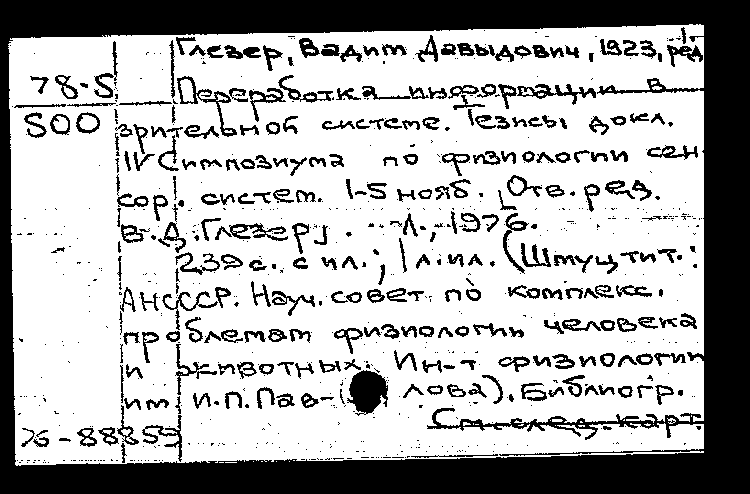 Глезер, Вадим Давыдович, 1923, ред.
78-S Переработка информации в
SOO зрительной системе. Тезисы докл.
IV Симпозиума по физиологии сен-
сор. систем. 1-5 нояб. [Отв. ред.
В.Д. Глезер]. - Л., 1976.
239 с. с ил.; 1 л. ил. (Шмуцтит.:
АН СССР. Науч. совет по комплекс.
проблемам физиологии человека
и животных. Ин-т физиологии
им. И.П. Пав-лова). Библиогр.
См. след. карт.
76-88859